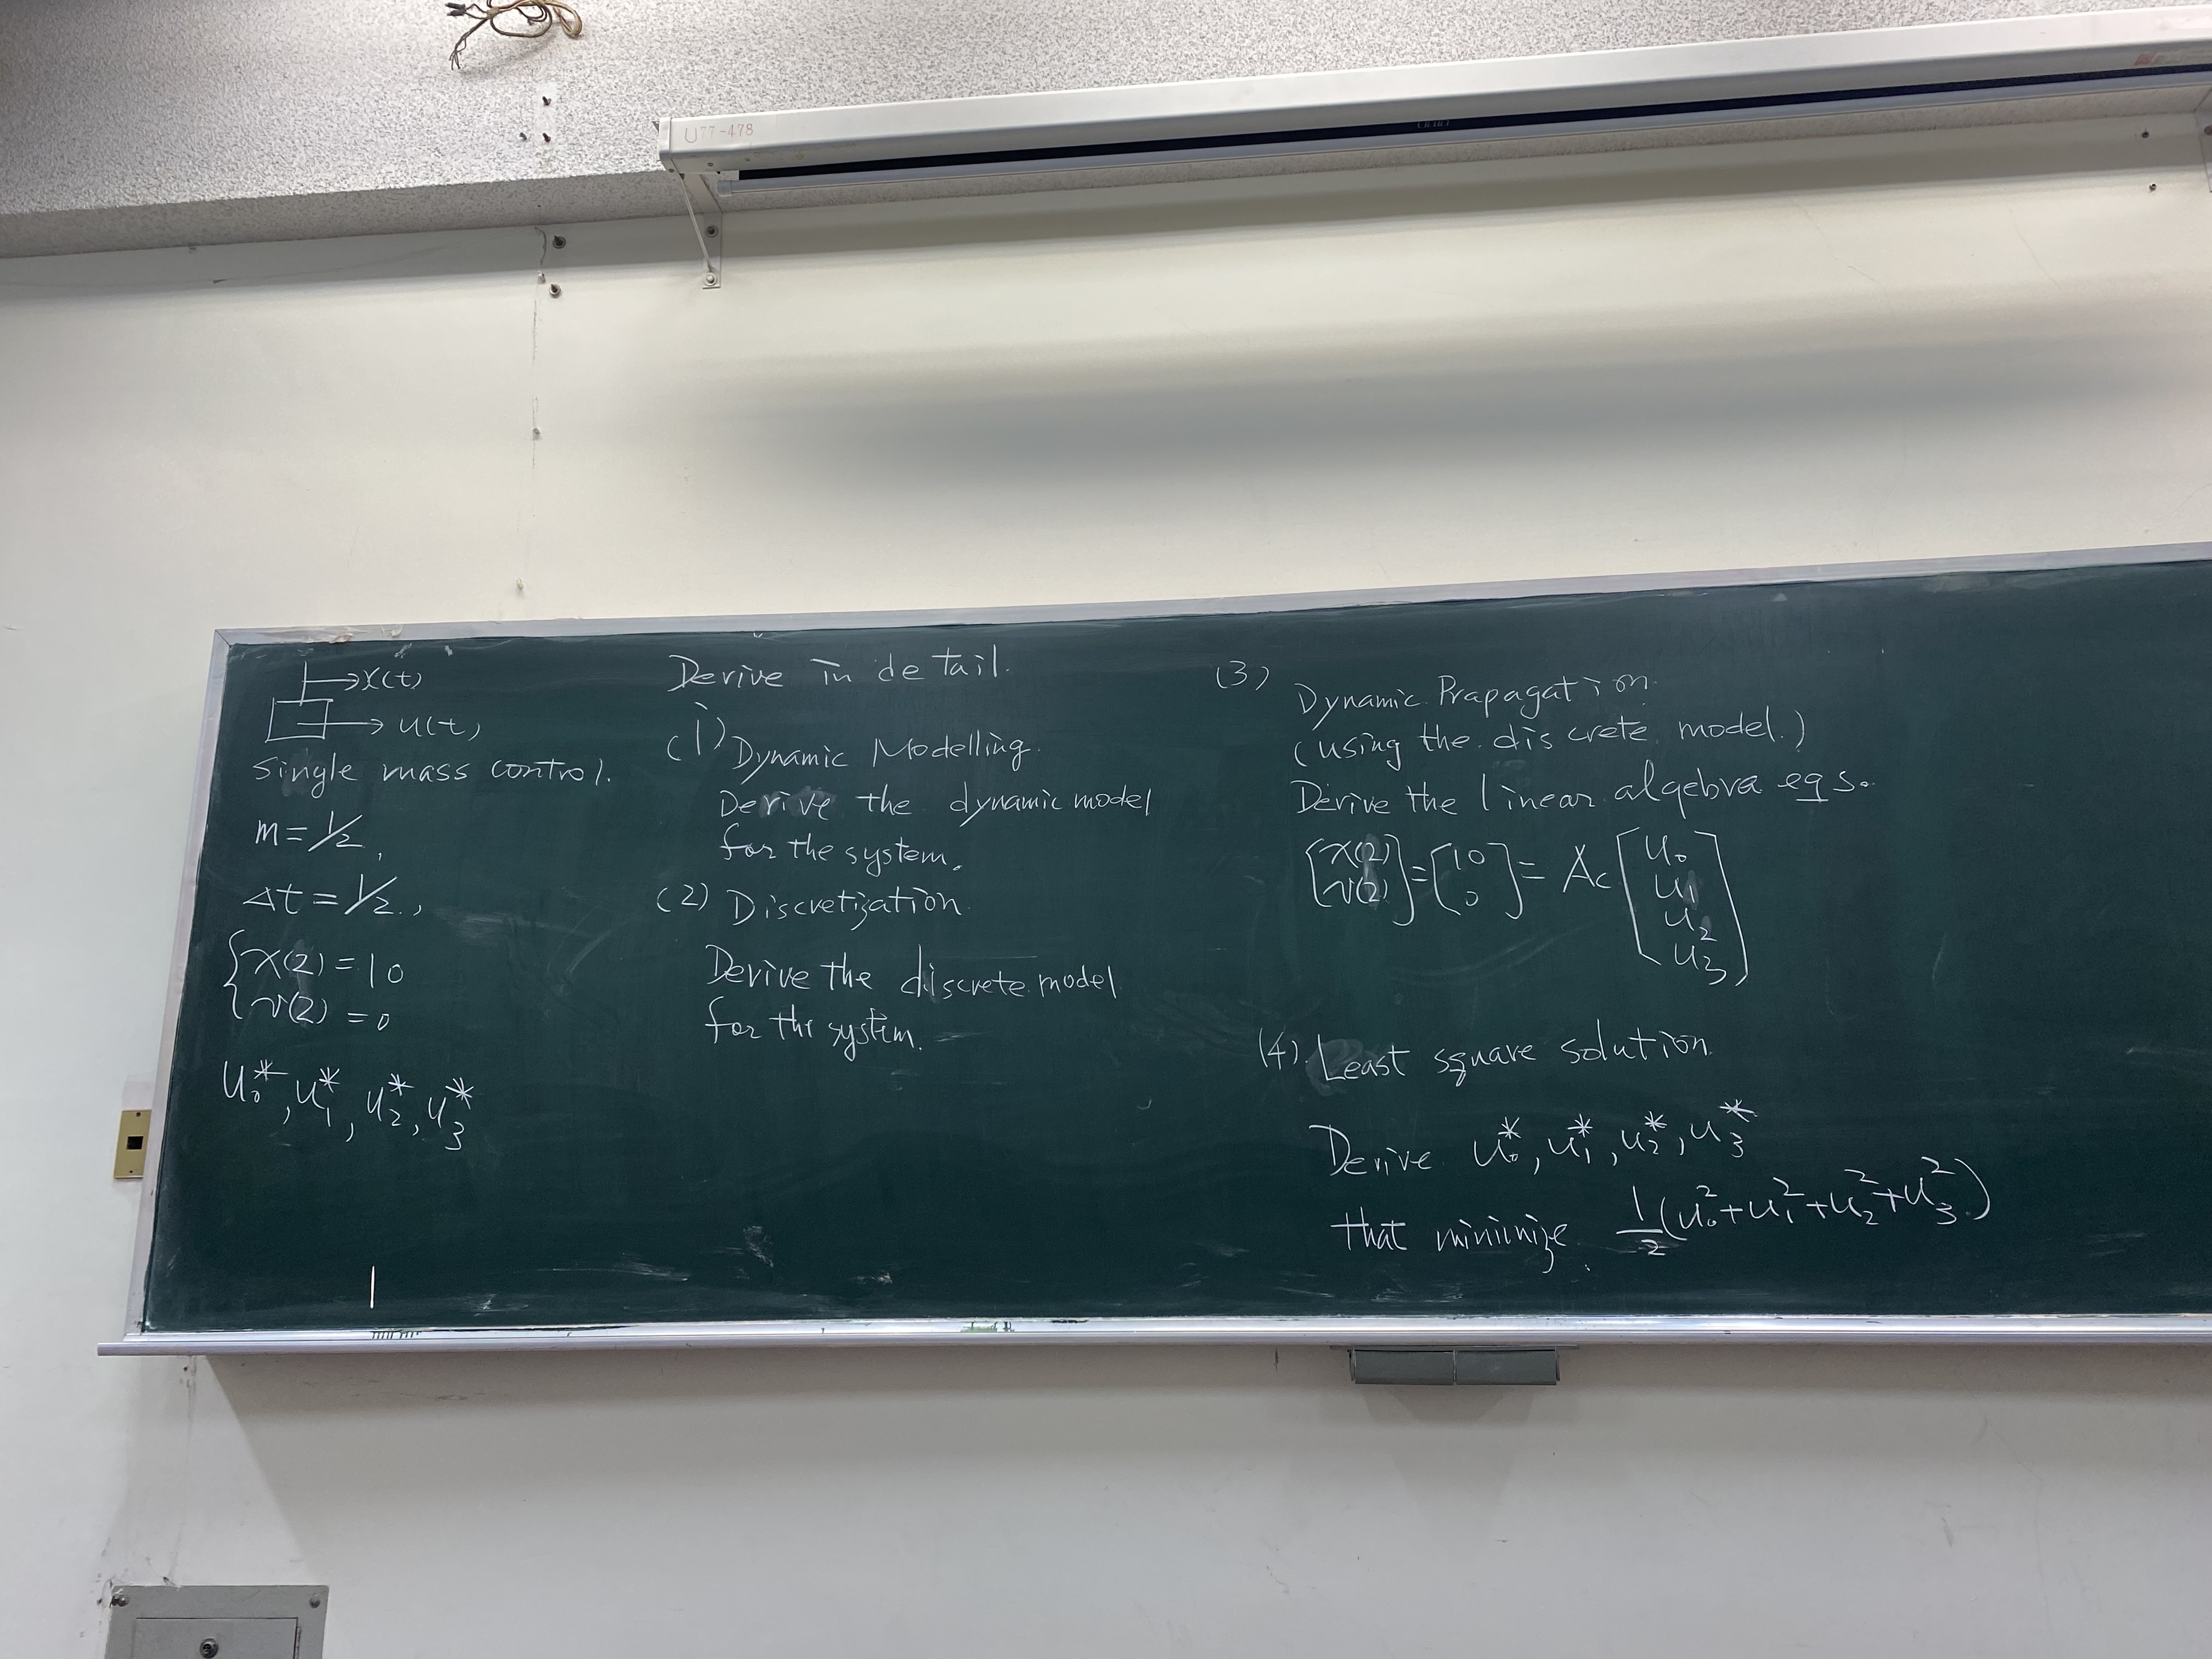 U77-478
→x(t)
→ u(t)
single mass control.
m = 1/2,
Δt = 1/2.,
{x(2) = 10
v(2) = 0
u₀*, u₁*, u₂*, u₃*
Derive in detail.
(1) Dynamic Modelling.
Derive the dynamic model
for the system.
(2) Discretization.
Derive the discrete model
for the system.
(3)
Dynamic Prapagation.
(using the discrete model.)
Derive the linear algebra eqs.
[x(2) v(2)] = [10 0] = Ac [u₀ u₁ u₂ u₃]
(4) Least square solution.
Derive u₀*, u₁*, u₂*, u₃*
that minimize 1/2 (u₀² + u₁² + u₂² + u₃²)